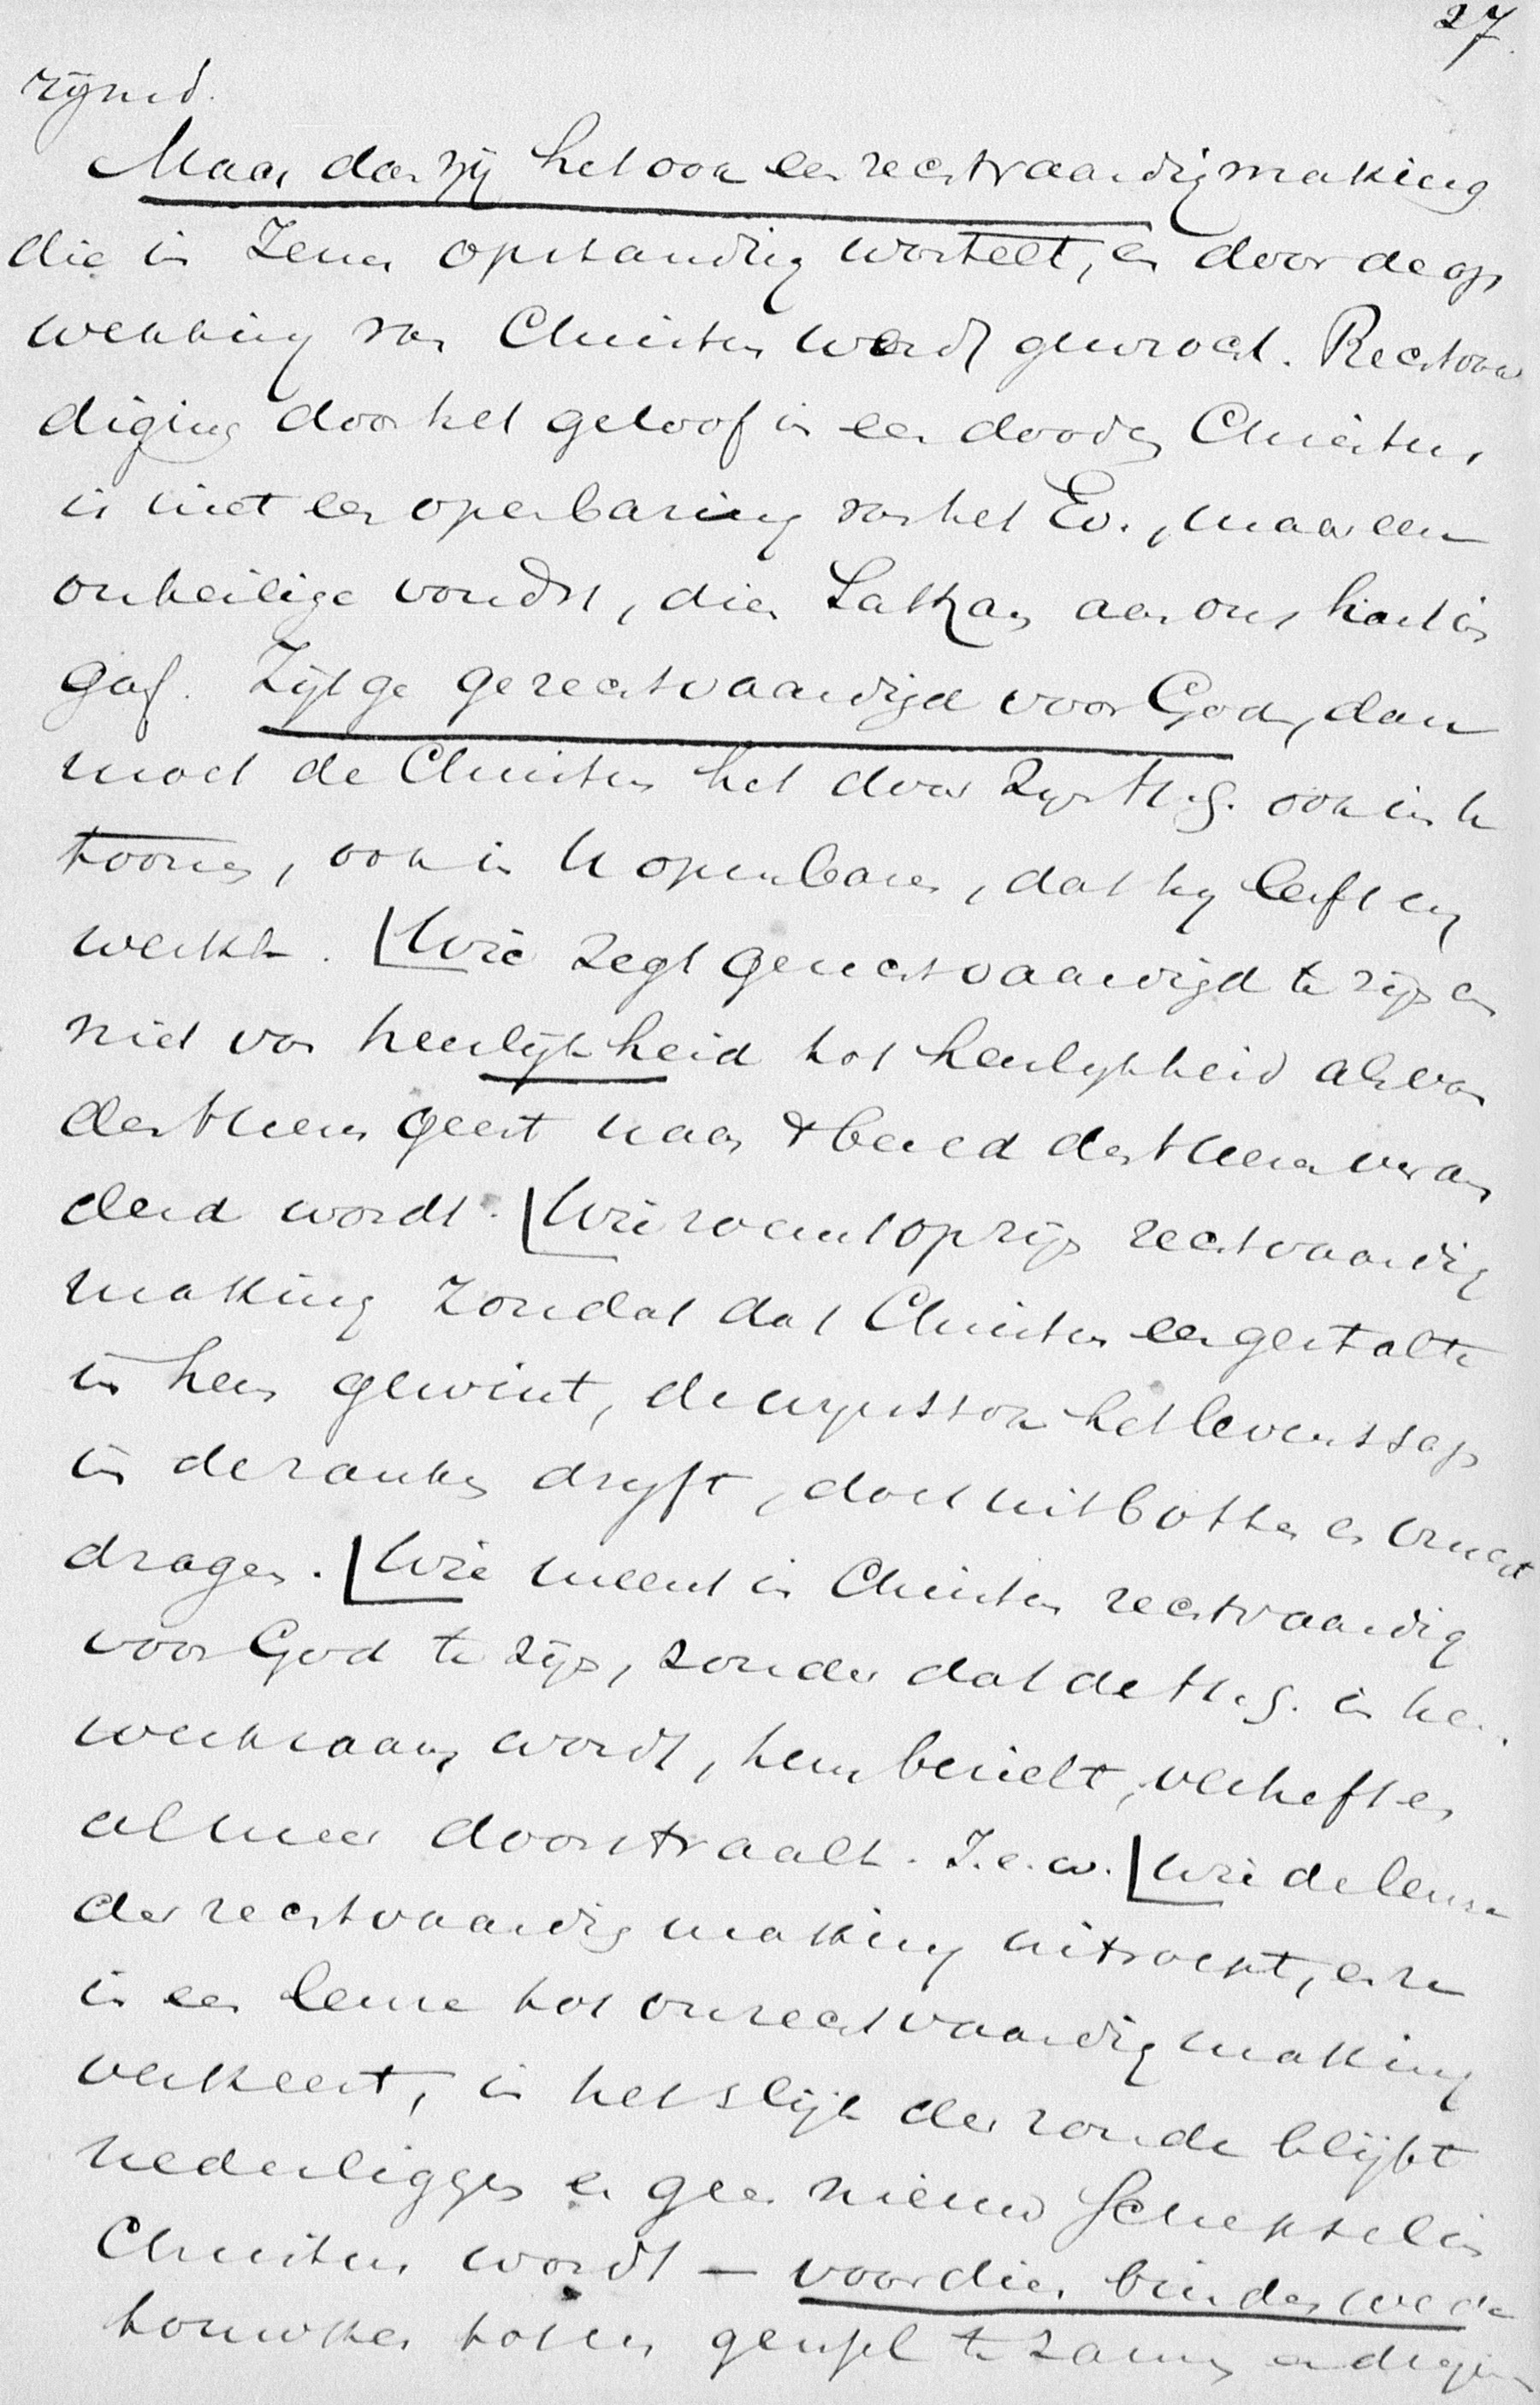 27.
zijnd.
Maar dan zij het ook een rechtvaardigmaking
die in Jezus opstanding wortelt, en door de op
wekking van Christus werd gewrocht. Rechtvaar
diging door het geloof in een dooden Christus,
is niet een openbaring van het Ev., maar een
onheilige vondst, dien Sathan aan ons hart in
gaf. Zijt ge gerechtvaardigd voor God, dan
moet de Christus het door Zijn H.G. ook in U
toonen, ook in U openbaren, dat hij leeft en
werkt. Wie zegt gerechtvaardigd te zijn en
niet van heerlijkheid tot heerlijkheid als van
des Heeren Geest naar 't beeld des Heeren veran
derd wordt. Wie roemt op zijn rechtvaardig
making zonder dat Christus een gestalte
in hem gewint, de wijnstok het levenssap
in de ranken drijft, doet uitbotten en vrucht
dragen. Wie meent in Christus rechtvaardig
voor God te zijn, zonder dat de H.G. in hem
werkzaam wordt, hem bezielt, verheft en
al meer doorstraalt. I.e.w. Wie de leuze
der rechtvaardigmaking uitroept, en ze
in een leuze tot onrechtvaardigmaking
verkeert, in het slijk der zonde blijft
nederliggen en geen nieuw schepsel in
Christus wordt — voor dien binden we de
touwkens tot een geesel te zamen en drijven